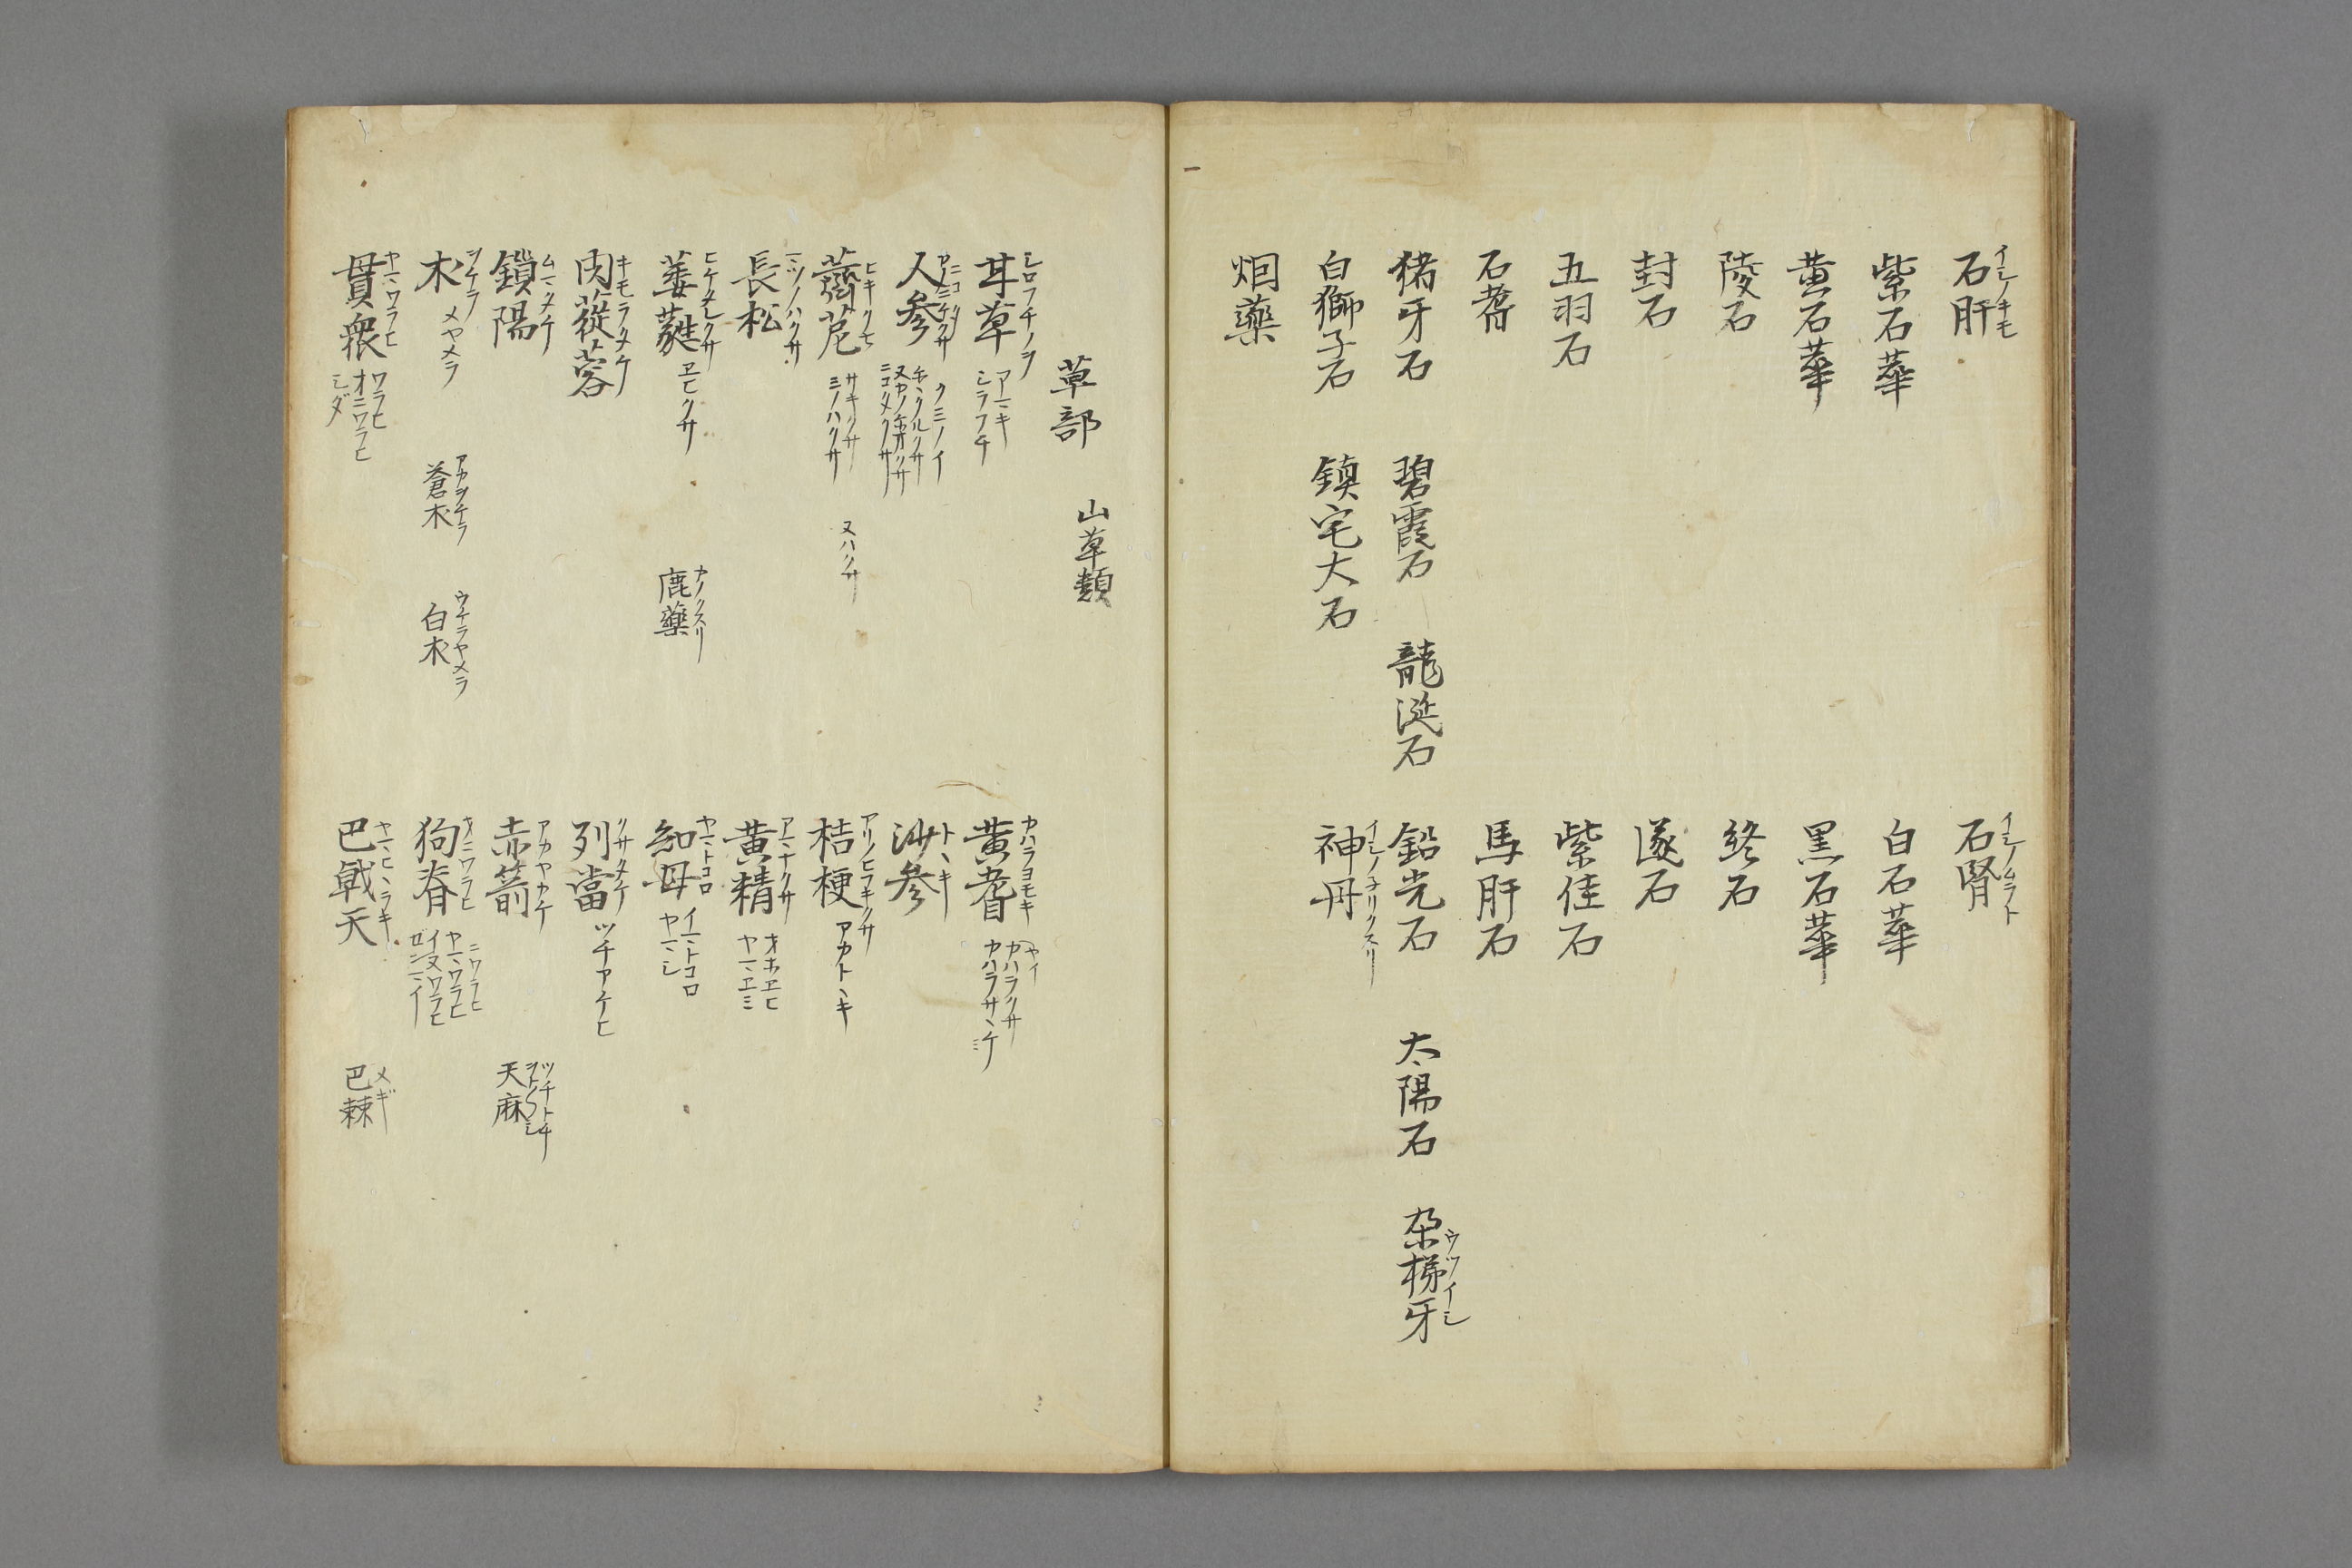 石肝 イシノキモ
石腎 イシノムラト
紫石華
白石華
黄石華
黒石華
陵石
終石
封石
遂石
五羽石
紫佳石
石耆
馬肝石
猪牙石 碧霞石 龍涎石
鉛光石 太陽石 朶梯牙 ウツイシ
白獅子石 鎮宅大石
神丹 イシノネリクスリ
烟藥
草部 山草類
甘草 シロフチノヲ アマキ シラフチ
黄耆 カハラヨモキ ヤイ カハラクサ カハラサヽケ
人参 クミノイ チヽクルクサ ニコメクサ
沙参 トヽキ
薺苨 ヒキクモ サキクサ ミノハクサ 又ハクサ
桔梗 アリノヒフキクサ アカトヽキ
長松 ミツノハクサ
黄精 アマナクサ オホヱヒ ヤマヱミ
萎蕤 ヒケタレクサ ヱヒクサ 鹿藥 カノクスリ
知母 ヤマトコロ イマトコロ ヤマシ
肉蓯蓉 キモラタケ
列當 クサタケ ツチアケヒ
鎖陽 ムマタケ
赤箭 アカヤカケ 天麻 ツチトチ
朮 ヲケラ メヤメラ 蒼朮 アカヲケラ 白朮 ウケラヤメラ
狗脊 オニワラヒ ニワラヒ ヤマワラヒ イヌワラヒ
貫衆 ヤマワラヒ ワラヒ オニワラヒ シダ
巴戟天 ヤマヒヽラキ 巴棘 メギ